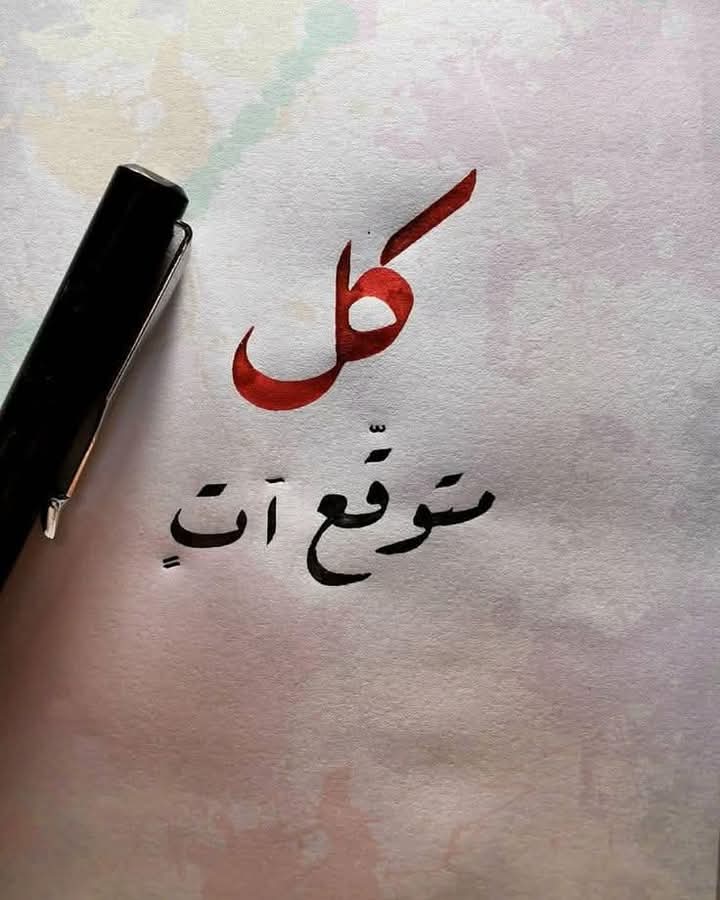 كل
متوقّع آتٍ